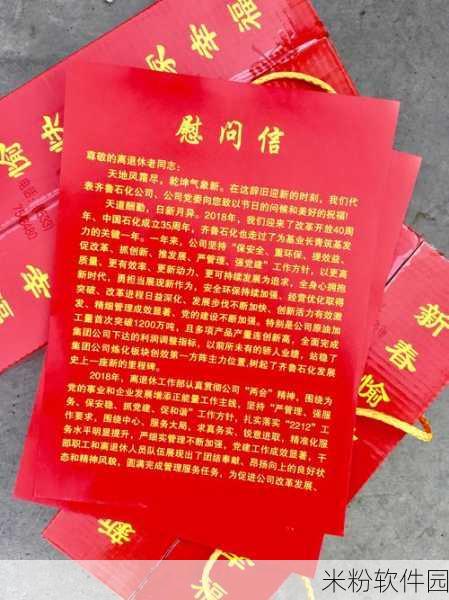 慰问信
尊敬的离退休老同志：
天地风霜尽，乾坤气象新。在这辞旧迎新的时刻，我们代
表齐鲁石化公司、公司党委向您致以节日的问候和美好的祝福！
天道酬勤，日新月异。2018年，我们迎来了改革开放40周
年、中国石化成立35周年，齐鲁石化也走过了为基业长青筑基发
力的关键一年。一年来，公司坚持“保安全、重环保、提效益、
促改革、抓创新、推发展、严管理、强党建”工作方针，以更高
质量、更有效率、更新动力、更可持续发展为追求，全身心拥抱
新时代，勇担当展现新作为，安全环保持续加强、经营优化取得
突破、改革进程日益深化、发展步伐不断加快、创新活力有效激
发、精细管理成效显著、党的建设不断加强。特别是公司原油加
工量首次突破1200万吨，且多项产品产量连创新高，全面完成
集团公司下达的利润调整指标，以前所未有的骄人业绩，站稳了
集团公司炼化板块创效第一方阵主力位置，树起了齐鲁石化发展
史上一座新的里程碑。
2018年，离退休工作部认真贯彻公司“两会”精神，围绕为
党的事业和企业发展增添正能量工作主线，坚持“严管理、强服
务、保安稳、抓党建、促和谐”工作方针，扎实落实“2212”工
作要求，围绕中心、服务大局，求真务实、锐意进取，精准化服
务水平明显提升，严细实管理不断加强，党建工作成效显著，干
部职工和离退休人员队伍展现出了团结奉献、昂扬向上的良好状
态和精神风貌，圆满完成管理服务任务，为促进公司改革发展、
愉快
家幸福
新春愉
新
米粉软件园